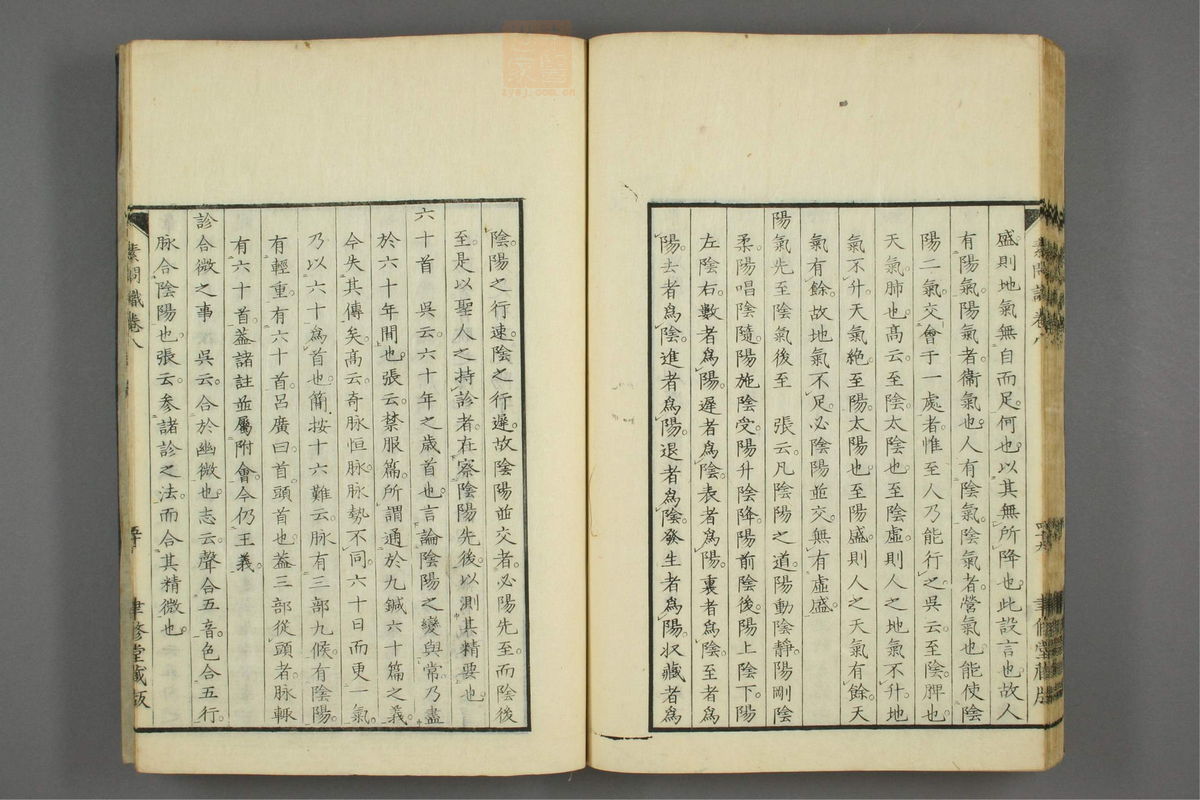 盛則地氣無自而足何也以其無所降也此設言也故人
有陽氣陽氣者衞氣也人有陰氣陰氣者營氣也能使陰
陽二氣交會于一處者惟至人乃能行之吳云至陰脾也
天氣肺也髙云至陰太陰也至陰虛則人之地氣不升地
氣不升天氣絶至陽太陽也至陽盛則人之天氣有餘天
氣有餘故地氣不足必陰陽並交無有虛盛
陽氣先至陰氣後至 張云凡陰陽之道陽動陰靜陽剛陰
柔陽唱陰隨陽施陰受陽升陰降陽前陰後陽上陰下陽
左陰右數者爲陽遲者爲陰表者爲陽裏者爲陰至者爲
陽去者爲陰進者爲陽退者爲陰發生者爲陽收藏者爲
陰陽之行速陰之行遲故陰陽並交者必陽先至而陰後
至是以聖人之持診者在察陰陽先後以測其精要也
六十首 吳云六十年之歳首也言論陰陽之變與常乃盡
於六十年間也張云禁服篇所謂通於九鍼六十篇之義
今失其傳矣髙云奇脉恒脉脉勢不同六十日而更一氣
乃以六十爲首也簡按十六難云脉有三部九候有陰陽
有輕重有六十首呂廣曰首頭首也葢三部從頭者脉輒
有六十首葢諸註並屬附會今仍王義
診合微之事 吳云合於幽微也志云聲合五音色合五行
脉合陰陽也張云參諸診之法而合其精微也
素問識卷八
聿修堂藏版